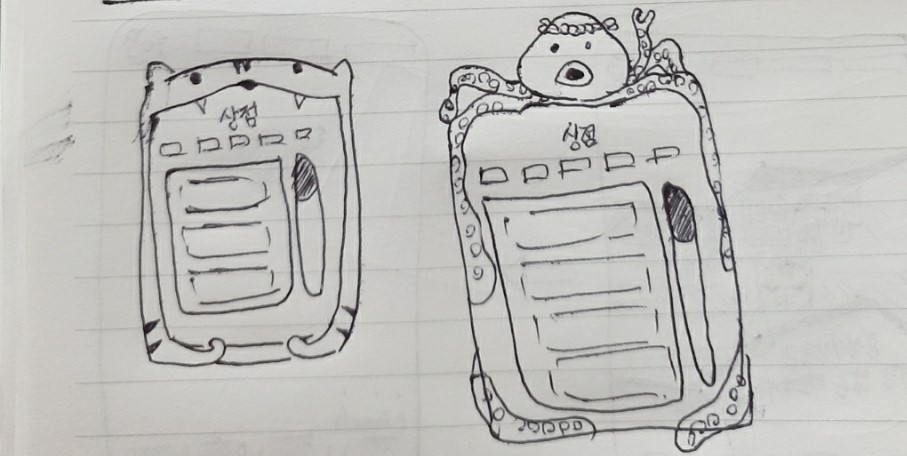 상점
상점